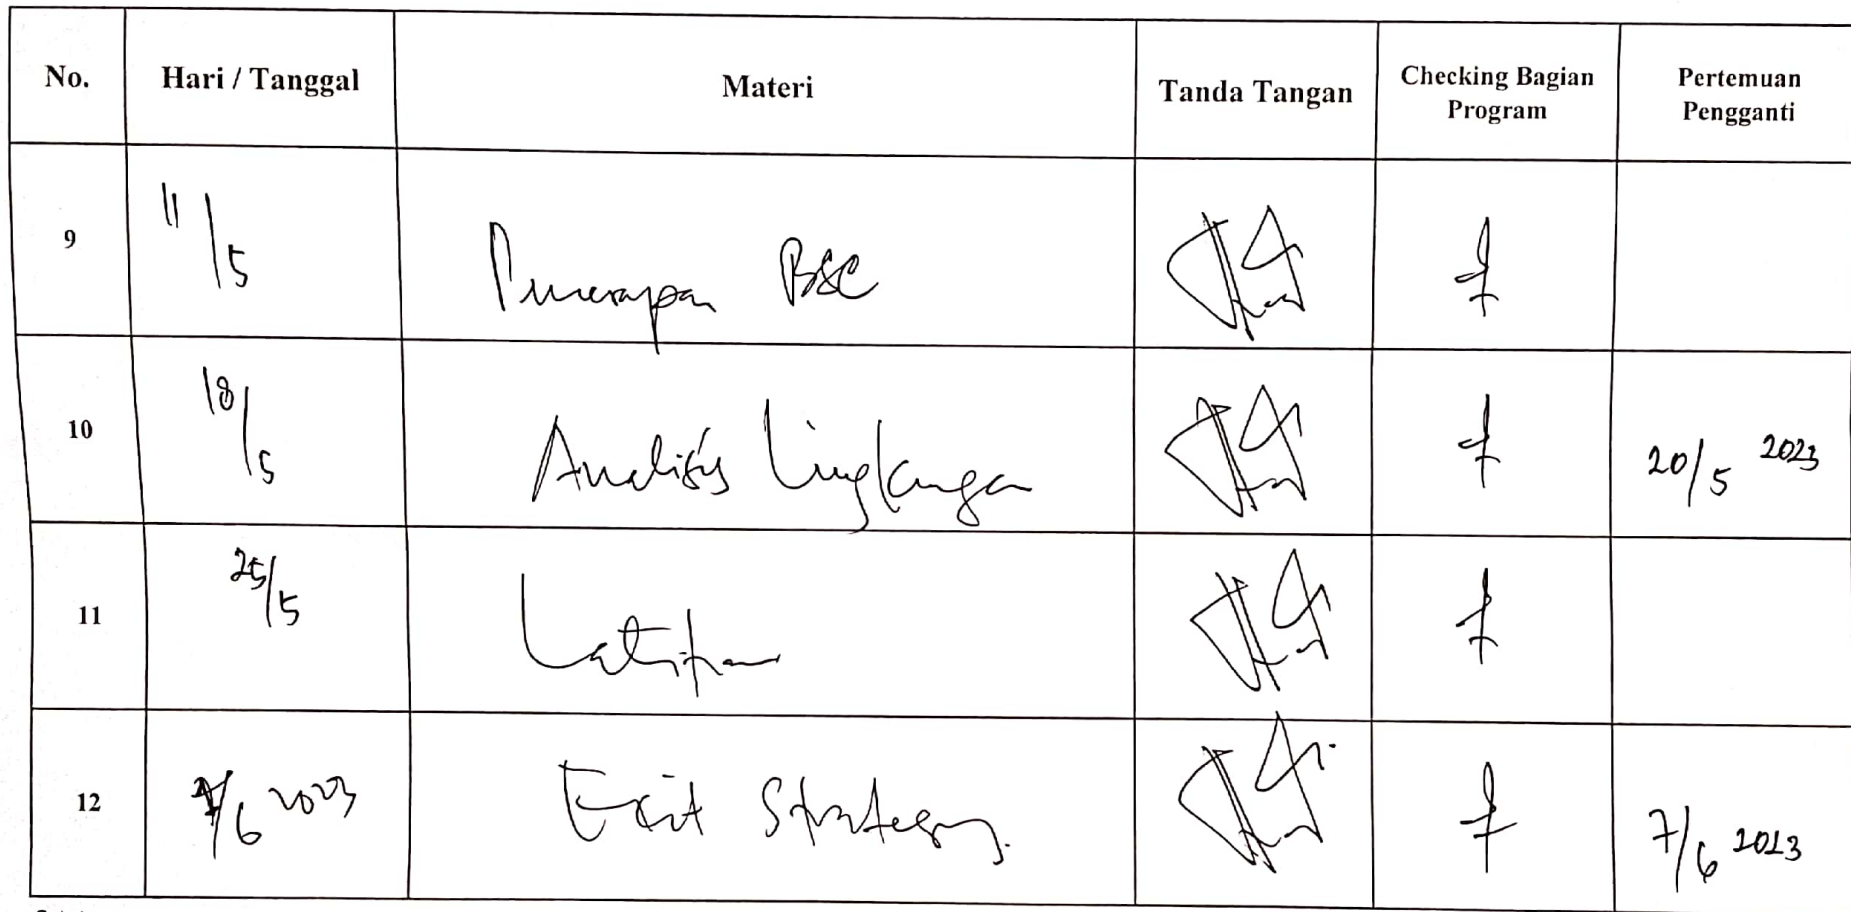 No. Hari / Tanggal Materi Tanda Tangan Checking Bagian Program Pertemuan Pengganti
9 11/5 Penerapan BSC
10 18/5 Analisis Lingkungan 20/5 2023
11 25/5 Latihan
12 /6 2023 Exit Strategy. 7/6 2023